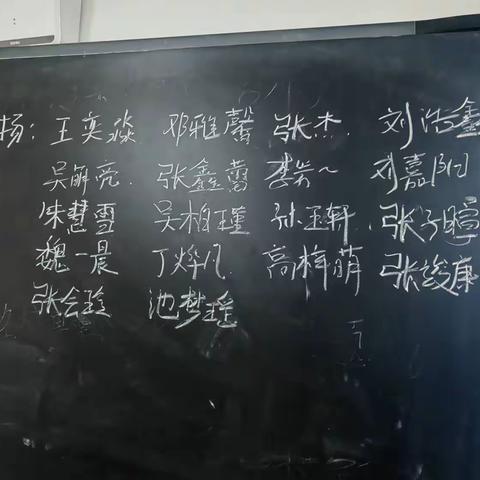 扬：王奕淼 邓雅馨 张杰 刘浩鑫
吴解亮 张鑫蕾 刘嘉阳
朱慧雪 吴柏瑾 孙玉轩 张子暄
魏一晨 丁烨凡 高梓萌 张俊康
张会玲 池梦瑶